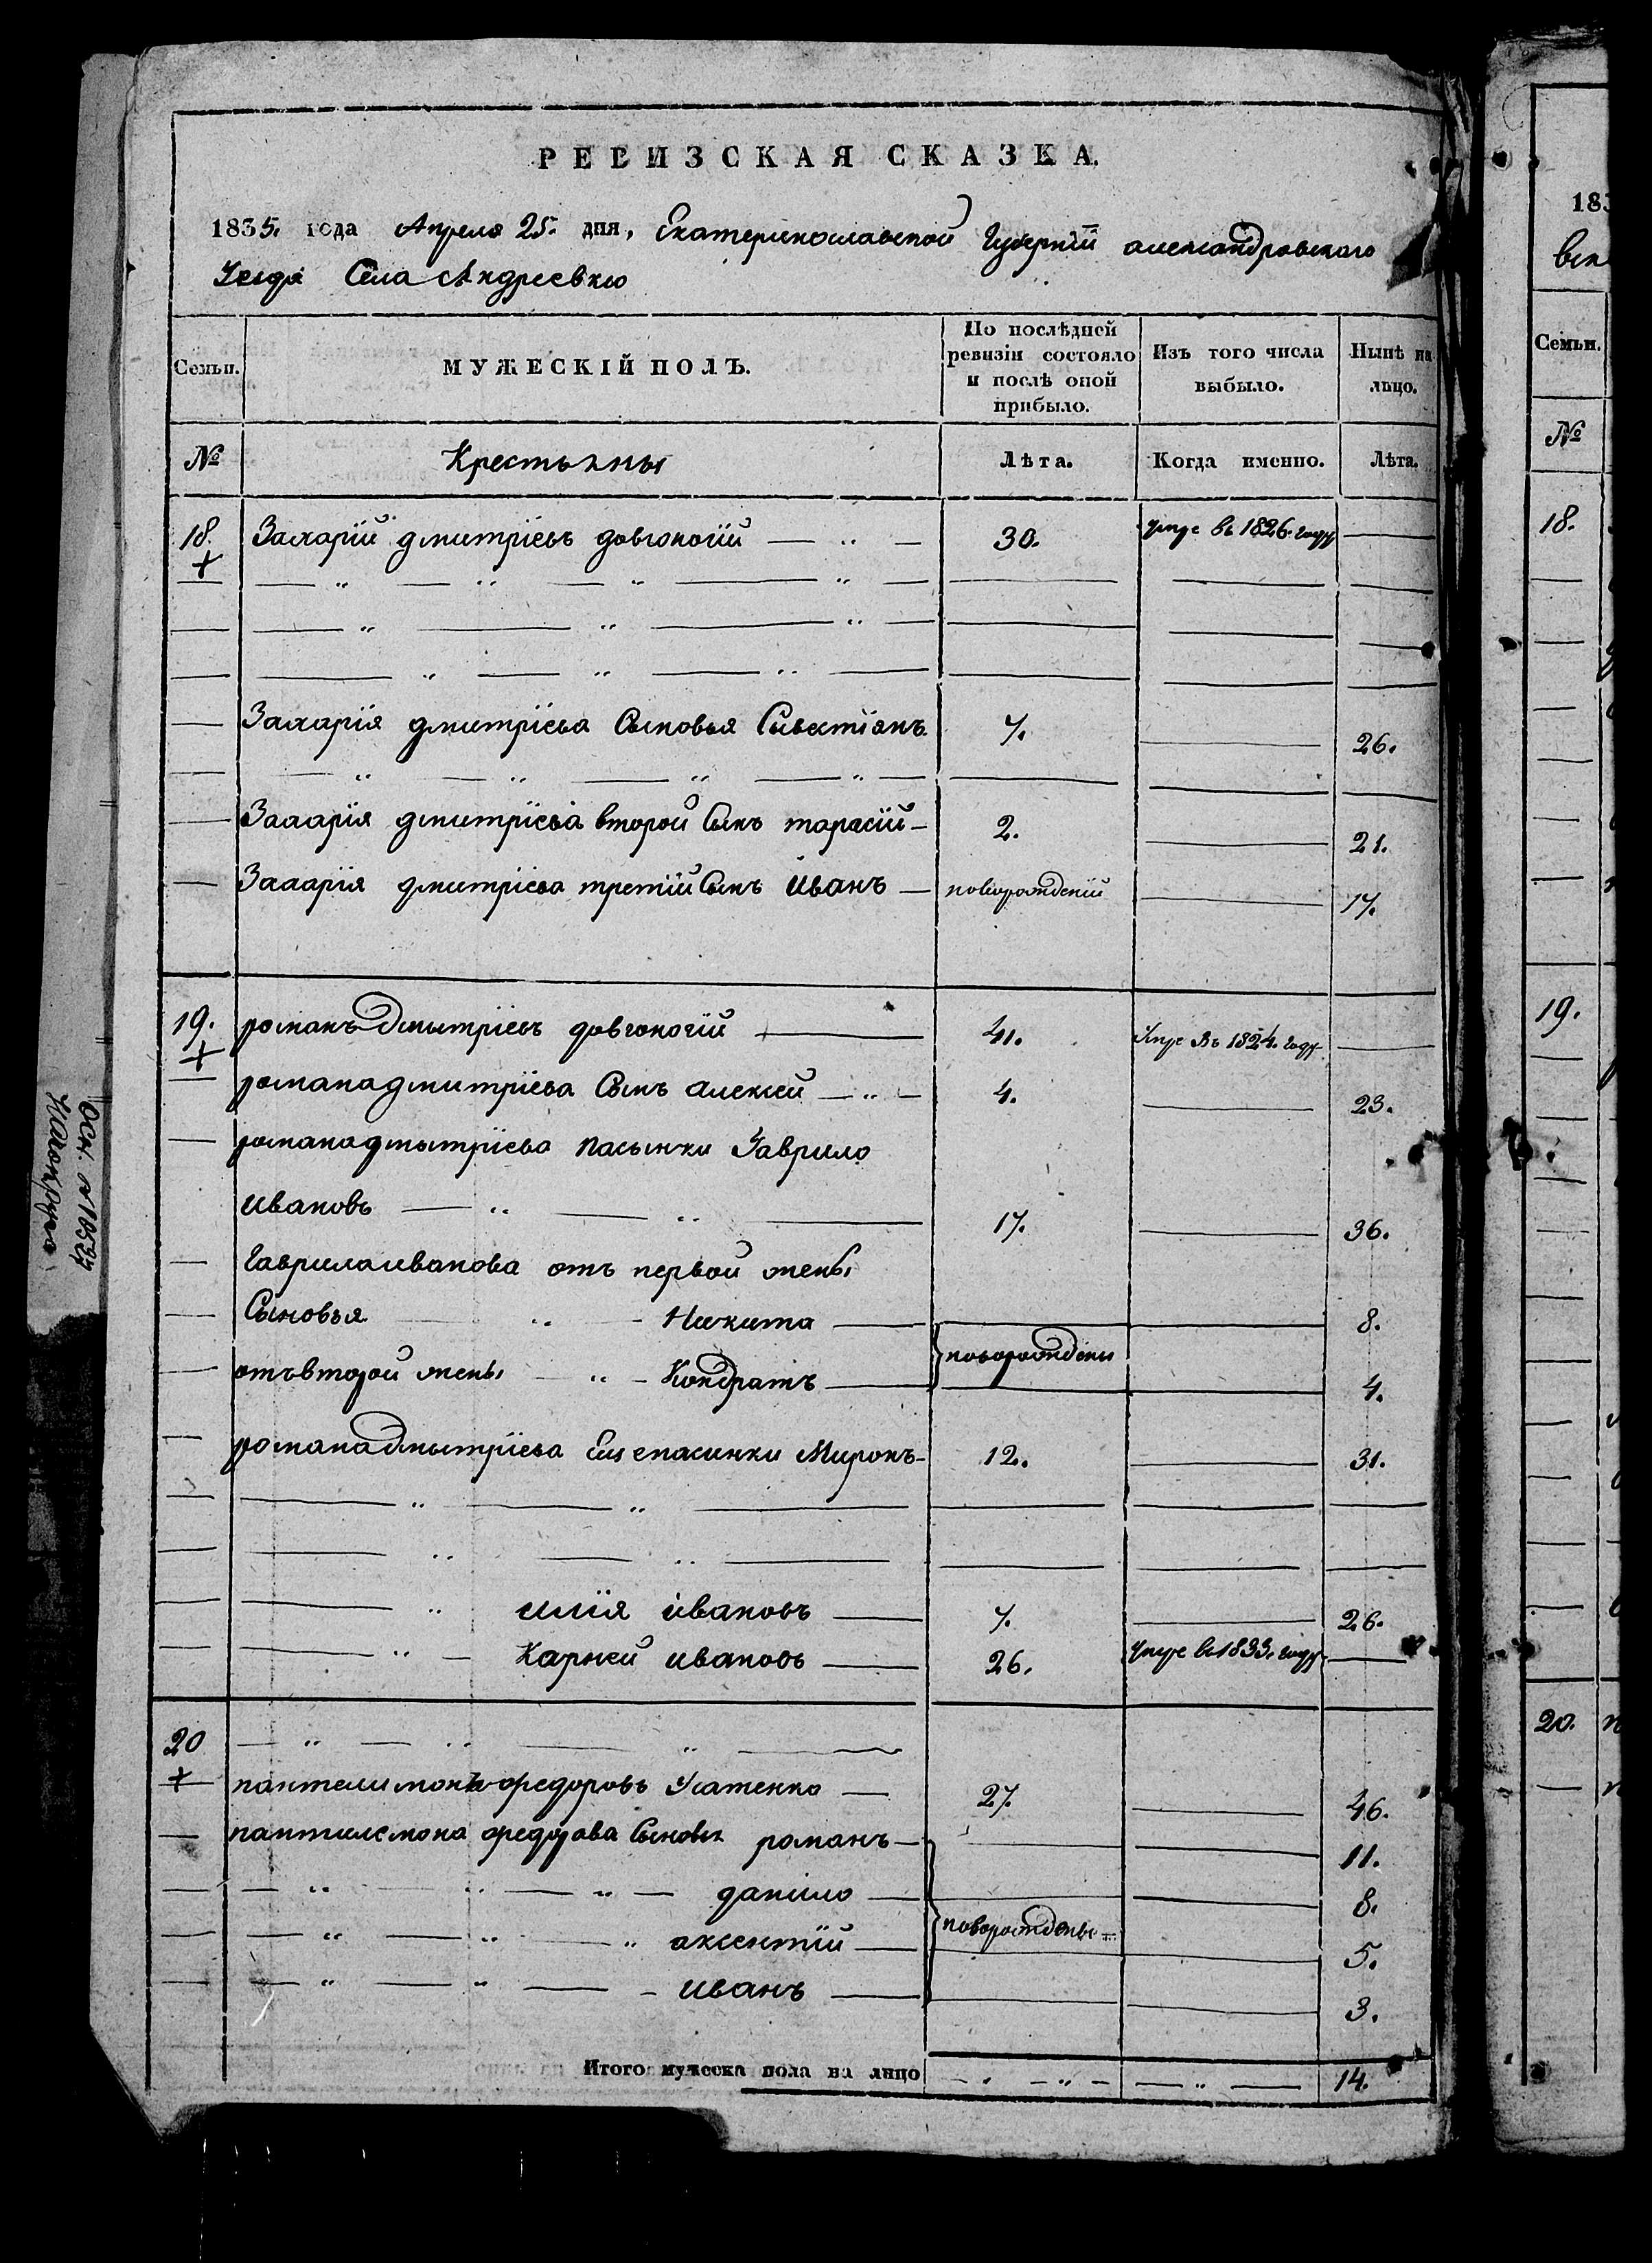 РЕВИЗСКАЯ СКАЗКА.
1835. года Апреля 25. дня, Екатеринославской Губернїи александровского
Уезда Села Андреевки
Семьи.
МУЖЕСКІЙ ПОЛЪ.
По послѣдней ревизіи состояло и послѣ оной прибыло.
Изъ того числа выбыло.
Нынѣ на лицо.
№ Крестьяны Лѣта. Когда именно. Лѣта.
18. Захарїй дмитрїевъ довгоногїй 30. умре въ 1826. году
Захарїя дмитрїева Сыновья Сивестїянъ 7. 26.
Захарїя дмитрїева второй Сынъ тарасїй 2. 21.
Захарїя дмитрїева третїй Сынъ Иванъ новорожденїй 17.
19. романъ Дмытрїевъ довгоногїй 41. Умре Въ 1824. году
романа дмитрїева Сынъ алексей 4. 23.
романа дмытрїева пасынки Гаврило
ивановъ 17. 36.
Гаврила иванова отъ первой жены
Сыновья Никита 8.
новорождены
отъ второй жены Кондратъ 4.
романа Дмытрїева Еще пасинки Миронъ 12. 31.
илїя ивановъ 7. 26.
Карней ивановъ 26. Умре въ 1833. году
20
пантелимонъ федоровъ Усатенко 27. 46.
пантилемона федорова Сыновья романъ 11.
данило 8.
новорождены
аксентїй 5.
иванъ 3.
Итого мужеска пола на лицо 14.
183
Семьи.
№
18.
19.
20.